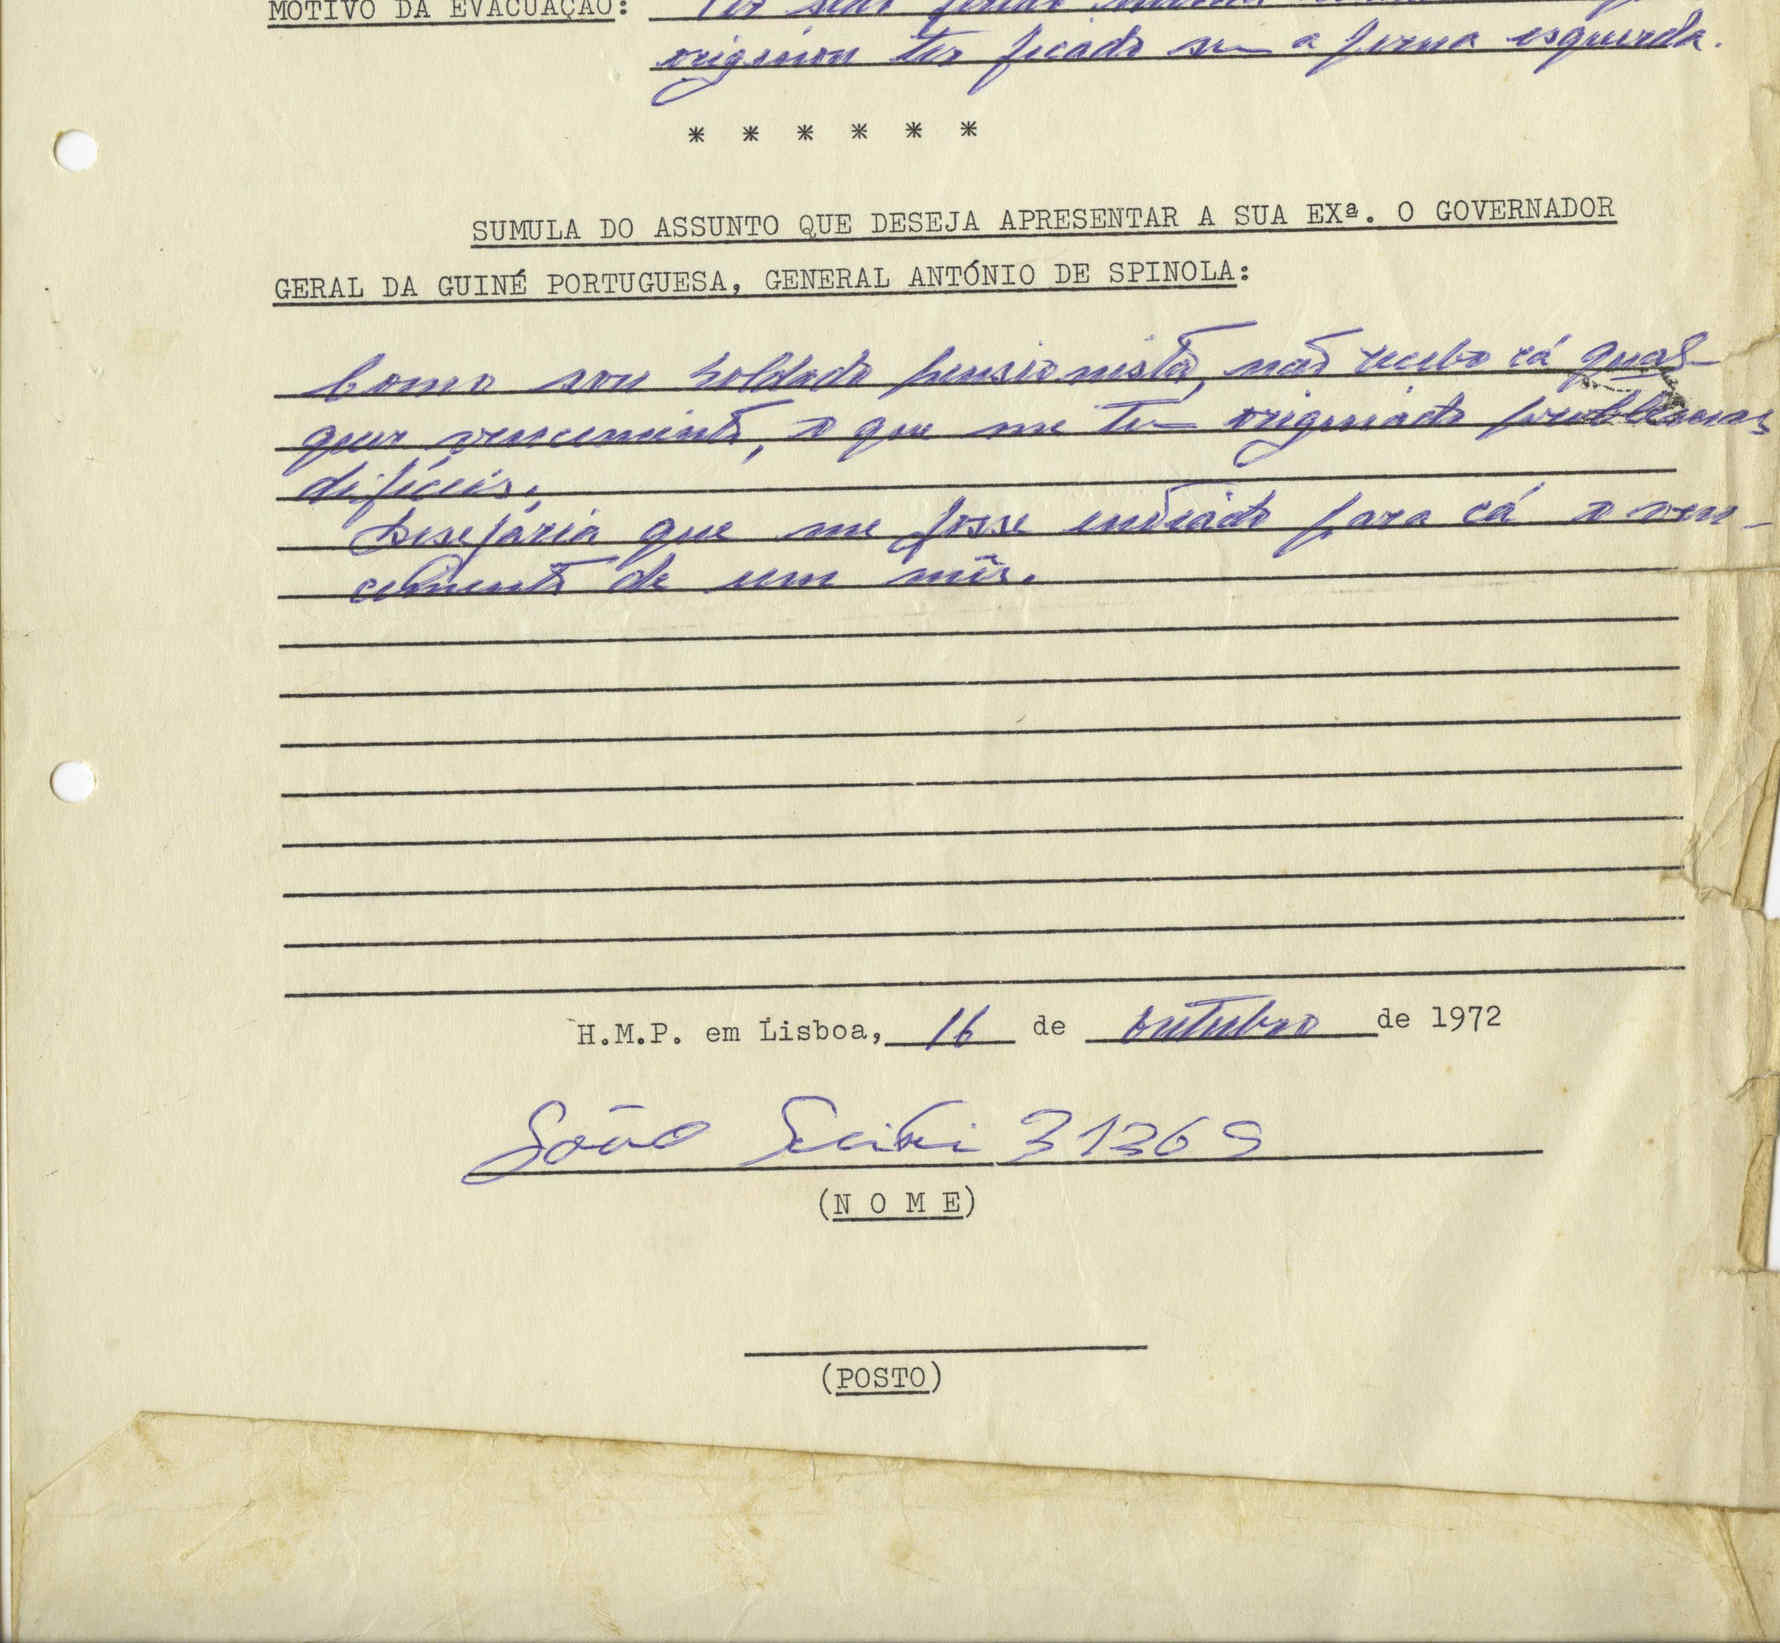 MOTIVO DA EVACUAÇÃO: Por sido
originou ter ficado sem a perna esquerda.
* * * * * *
SUMULA DO ASSUNTO QUE DESEJA APRESENTAR A SUA EXª. O GOVERNADOR
GERAL DA GUINÉ PORTUGUESA, GENERAL ANTÓNIO DE SPINOLA:
Como sou soldado pensionista, não recebo cá qual-
quer vencimento, o que me tem originado problemas
difíceis.
Desejaria que me fosse enviado para cá o ven-
cimento de um mês.
H.M.P. em Lisboa, 16 de Outubro de 1972
João 31369
(N O M E)
(POSTO)